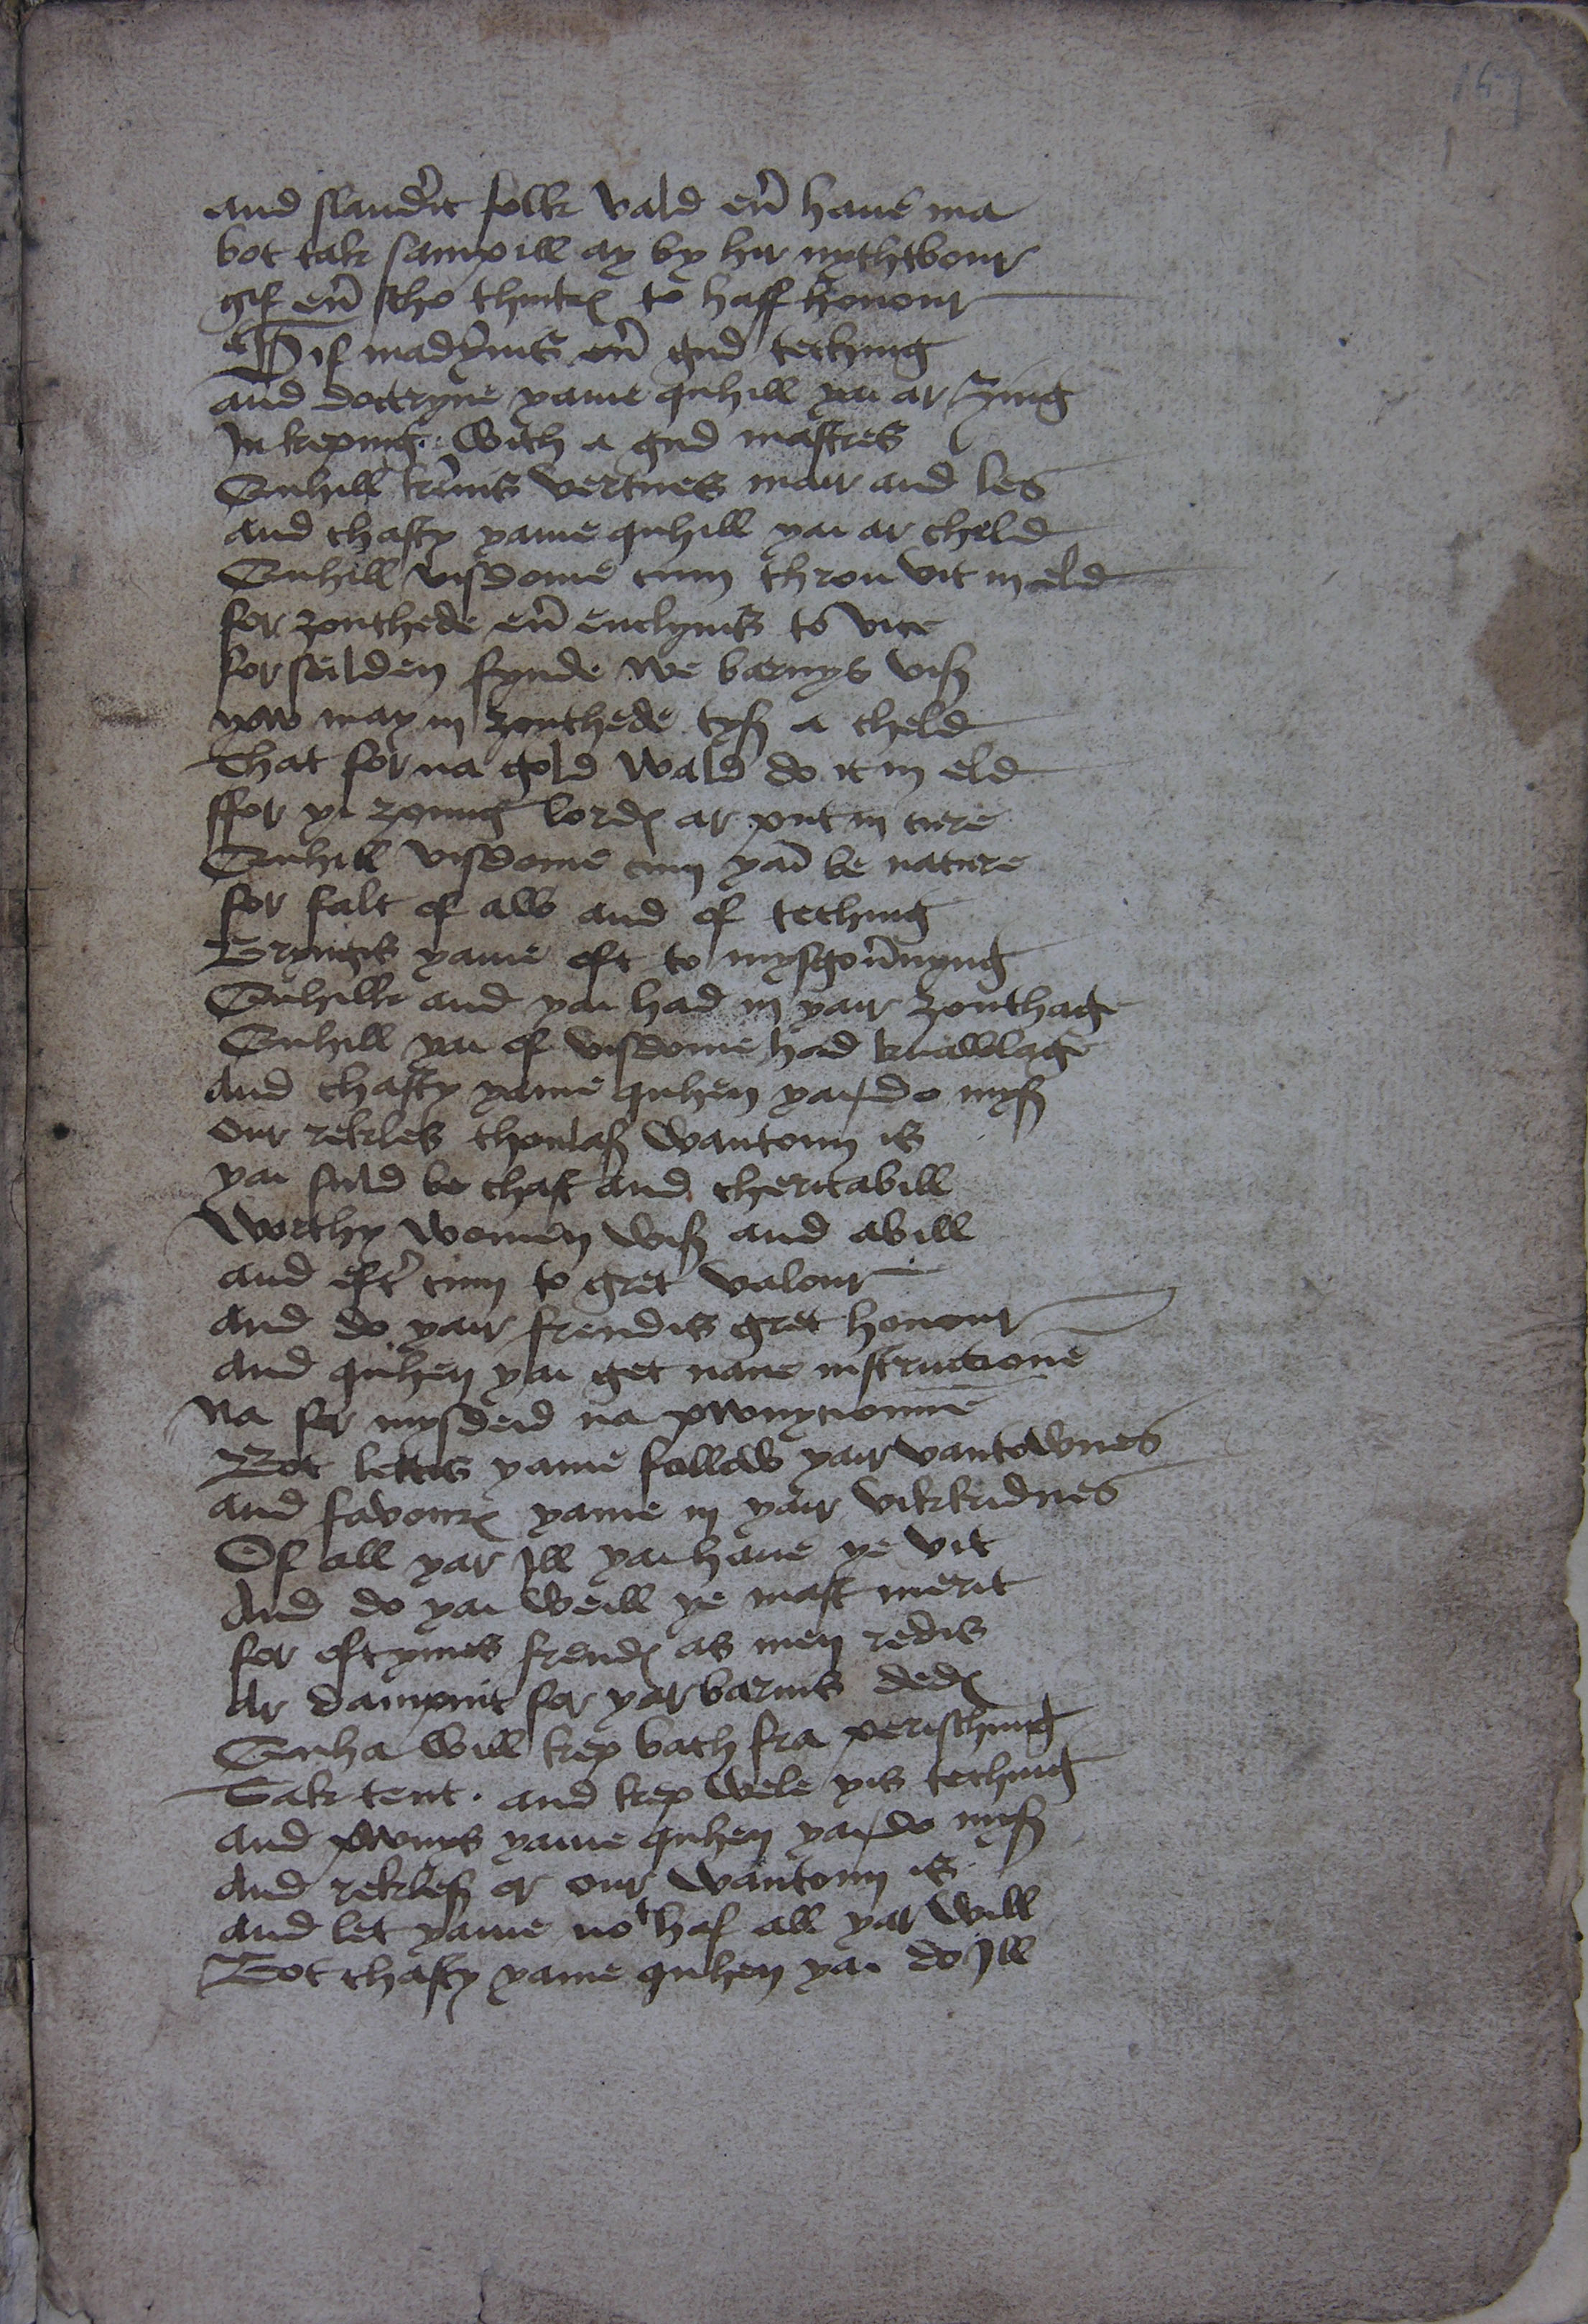 and sland'it folk vald eu' haue ma
bot tak sampill ay by hir nythtbour
gif eu' scho thinkis to haff honour
Gif madynis eu' gud teching
and doctryne yame quhill yai ar zing
In keping with a gud mastres
Quhill k'nis vertues mair and les
and chasty yame quhill yai ar cheld
Quhill visdome cum throu vit in eld
for zouthede eu' enclynis to vice
for seilden fynde we barnys viß
yow may in zouthede tyß a cheld
That for na gold wald do it in eld
ffor yi zoung lordis ar put in cure
Quhill visdome cum yaim be nature
for falt of aw and of teching
Bryngis yame oft to mysgou'nyng
Quhilk and yai had in yair zouthage
Quhill yai of visdome had knawlage
And chasty yame quhen yai do myß
our rekles thowlaß wantoun is
yai suld be chast and cheritabill
Worthy women wiß and abill
and eft' cum to gret valour
And do yair frendis gret honour
And quhen yai get nane instructione
Na for mysdeid na pwnycioune
Bot lettis yame follow yair vantownes
and favouris yame in yair vikkidnes
Of all yar Ill yai haue ye vit
And do yai weill ye mast merit
for oftymes frendis as men redis
Ar dampnit for yar barnis dedis
Quha will kep bath fra perisching
Tak tent . and kep wele yis teching
and pwnys yame quhen yai do myß
And rekleß or our wantoun is
and let yame not haf all yar will
Bot chasty yame quhen yai do Ill